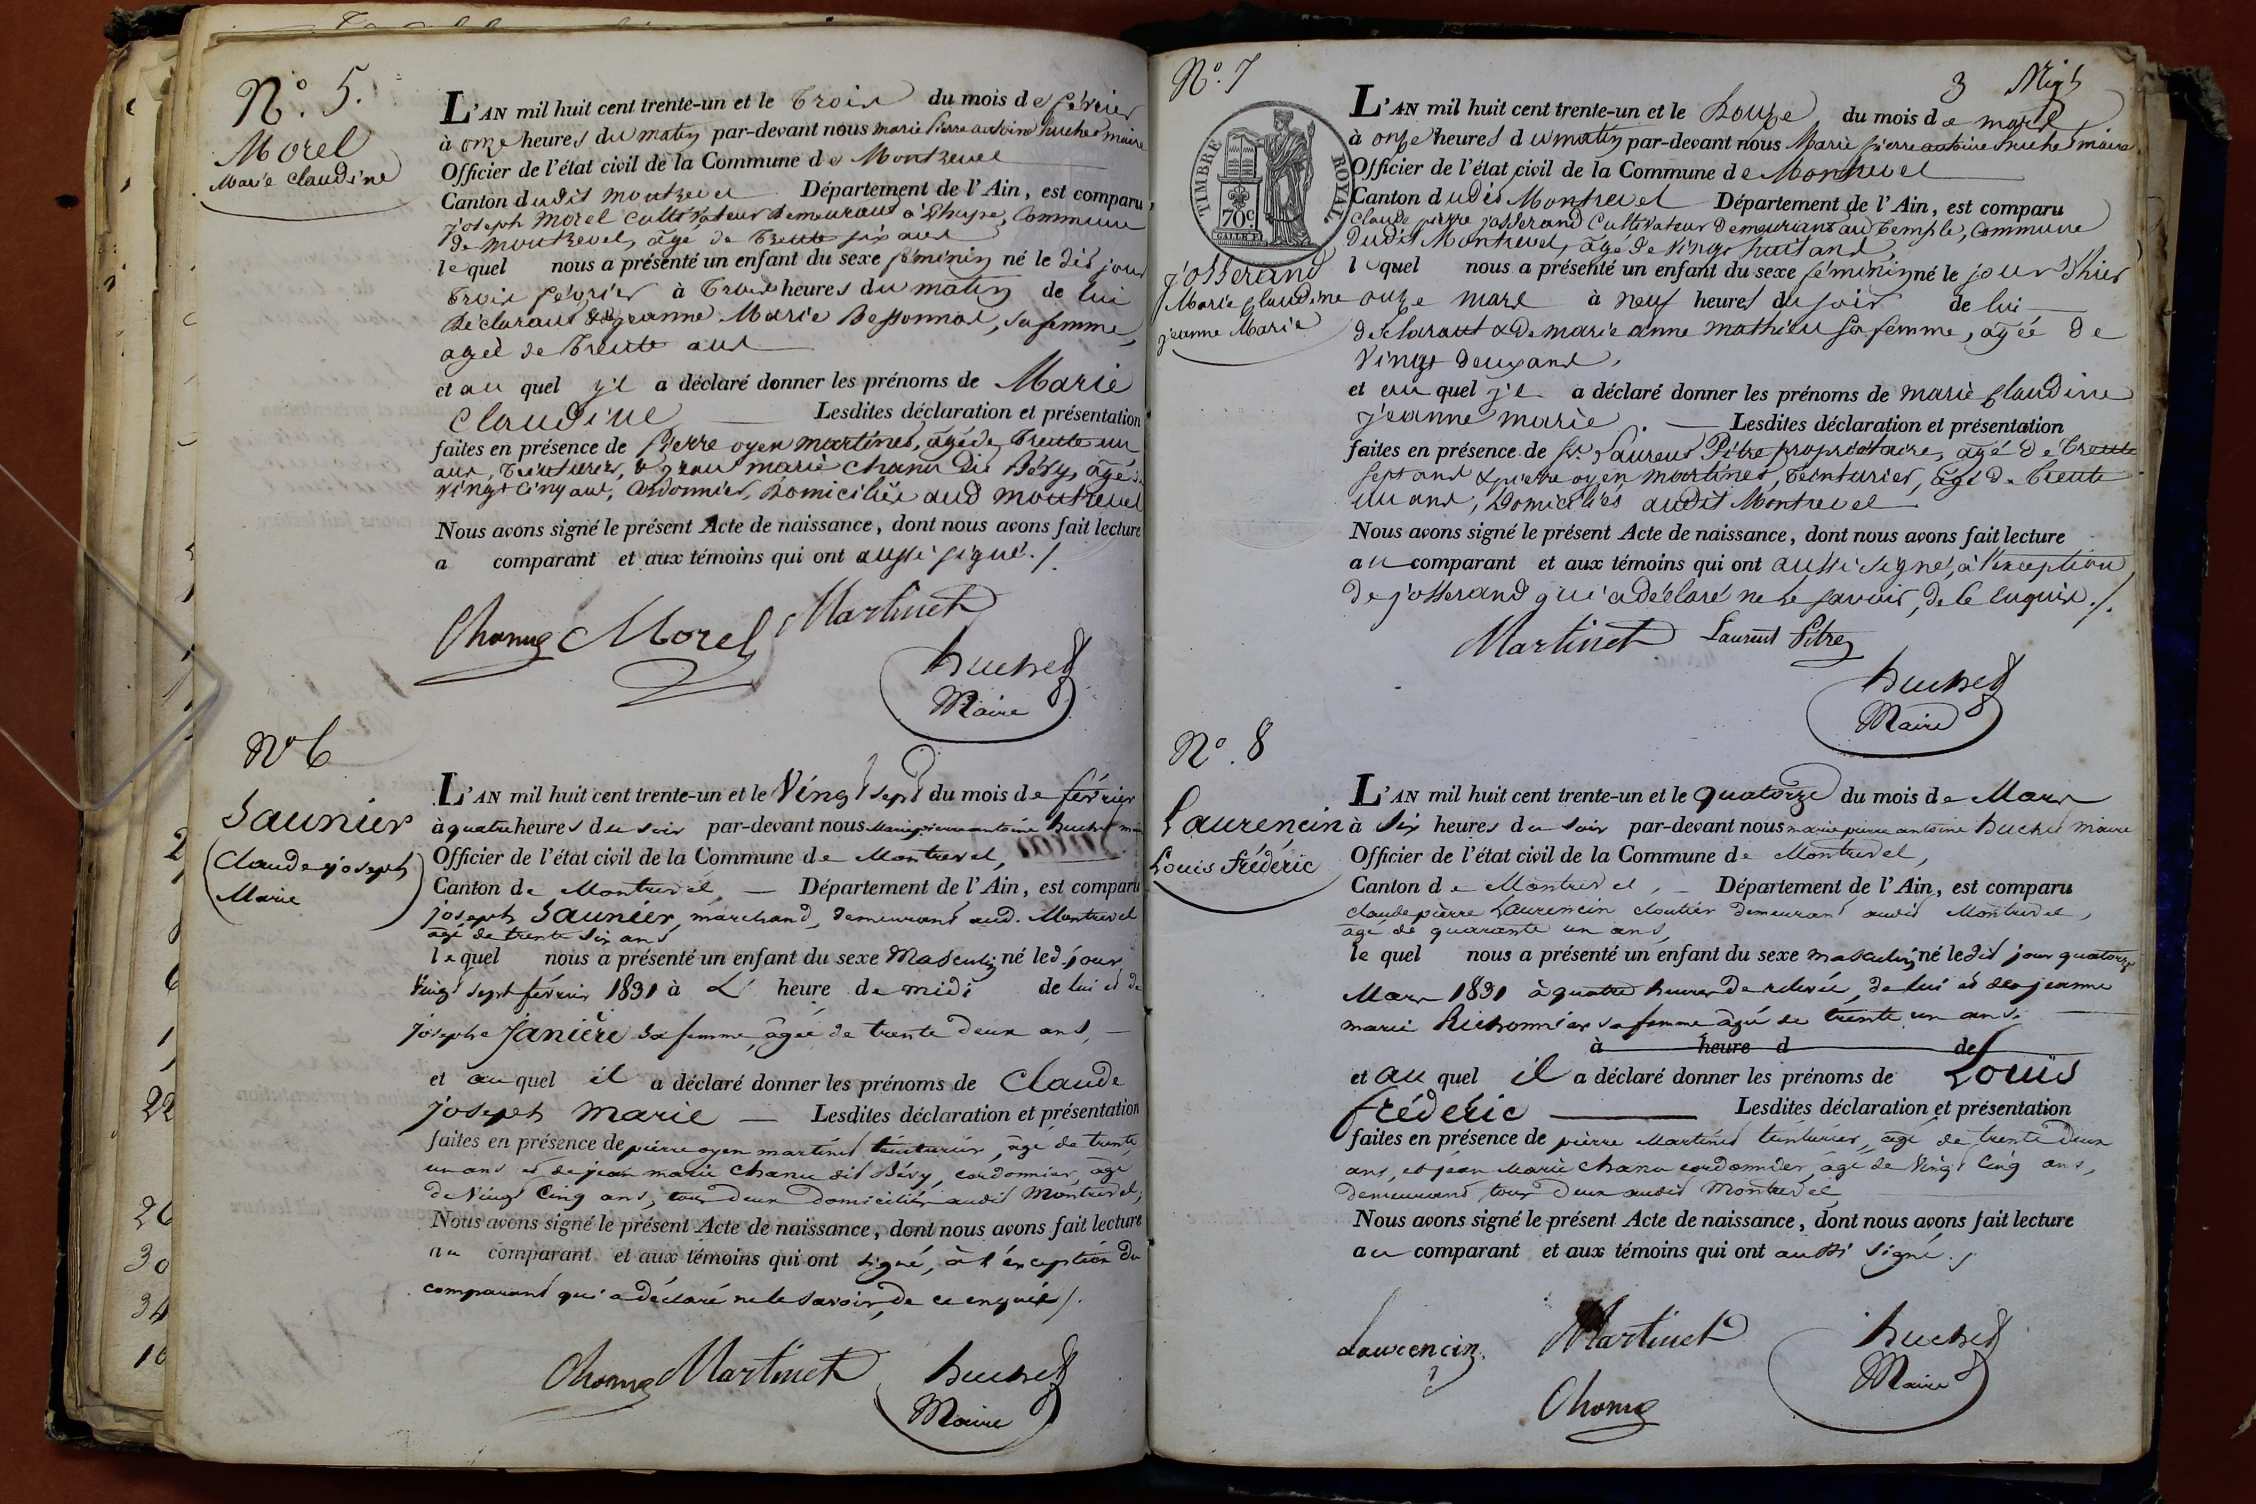 N° 5.
Morel
Marie Claudine
L'AN mil huit cent trente-un et le trois du mois de février
à onze heures du matin par-devant nous marie pierre antoine huchet maire
Officier de l'état civil de la Commune de Montrevel
Canton dudit montrevel Département de l'Ain, est comparu
joseph morel cultivateur demeurant à Commune
de montrevel, âgé de trente six ans
lequel nous a présenté un enfant du sexe féminin né le dit jour
trois février à trois heures du matin de lui
déclarant & de jeanne Marie Bessonnat, sa femme,
agée de trente ans
et au quel il a déclaré donner les prénoms de Marie
Claudine Lesdites déclaration et présentation
faites en présence de pierre oyen martinet, âgé de trente un
ans, teinturier, & jean marie chanu dit Bévy, âgé de
vingt cinq ans, cordonnier, domiciliés aud montrevel
Nous avons signé le présent Acte de naissance, dont nous avons fait lecture
a comparant et aux témoins qui ont aussi signé ./.
Chanu Morel Martinet
huchet
Maire
N° 6
Saunier
Claude joseph
Marie
L'AN mil huit cent trente-un et le Vingt sept du mois de février
à quatre heures du soir par-devant nous Marie pierre antoine huchet maire
Officier de l'état civil de la Commune de Montrevel,
Canton de Montrevel, — Département de l'Ain, est comparu
joseph Saunier, marchand, demeurant aud. Montrevel
âgé de trente six ans
lequel nous a présenté un enfant du sexe Masculin né led. jour
Vingt sept février 1831 à L' heure de midi de lui et de
josephe Janière sa femme, âgée de trente deux ans, —
et au quel il a déclaré donner les prénoms de Claude
joseph Marie — Lesdites déclaration et présentation
faites en présence de pierre oyen martinet teinturier, âgé de trente
un ans et de jean marie chanu dit Bévy, cordonnier, âgé
de Vingt Cinq ans, tous deux domiciliés audit Montrevel,
Nous avons signé le présent Acte de naissance, dont nous avons fait lecture
au comparant et aux témoins qui ont signé, à l'exception du
comparant qui a déclaré ne le savoir, de ce enquis ./.
Chanu Martinet huchet
Maire
3
N° 7
TIMBRE ROYAL
70c
L'AN mil huit cent trente-un et le douze du mois de mars
à onze heures du matin par-devant nous Marie pierre antoine huchet maire
Officier de l'état civil de la Commune de Montrevel
Canton dudit Montrevel Département de l'Ain, est comparu
Claude pierre josserand Cultivateur demeurant au temple, Commune
dudit Montrevel, âgé de vingt huit ans,
josserand
Marie Claudine
jeanne Marie
lequel nous a présenté un enfant du sexe féminin né le jour d'hier
onze mars à neuf heures du soir de lui
déclarant & de marie anne mathieu sa femme, agée de
vingt deux ans,
et au quel il a déclaré donner les prénoms de marie Claudine
jeanne marie — Lesdites déclaration et présentation
faites en présence de sr Laurent Pitre propriétaire, âgé de trente
sept ans & pierre oyen martinet, teinturier, âgé de trente
un ans, Domiciliés audit Montrevel
Nous avons signé le présent Acte de naissance, dont nous avons fait lecture
au comparant et aux témoins qui ont aussi signé, à l'exception
de josserand qui a déclaré ne le savoir, de ce enquis ./.
Martinet Laurent Pitre
huchet
Maire
N° 8
Laurencin
Louis Frédéric
L'AN mil huit cent trente-un et le quatorze du mois de Mars
à six heures du soir par-devant nous marie pierre antoine huchet Maire
Officier de l'état civil de la Commune de Montrevel,
Canton de Montrevel, — Département de l'Ain, est comparu
Claude pierre Laurencin cloutier demeurant audit Montrevel,
âgé de quarante un ans,
le quel nous a présenté un enfant du sexe masculin né ledit jour quatorze
Mars 1831 à quatre heures de relevée, de lui et de jeanne
marie sa femme âgée de trente un ans. —
à heure d de
et au quel il a déclaré donner les prénoms de Louis
frédéric — Lesdites déclaration et présentation
faites en présence de pierre Martinet teinturier, âgé de trente deux
ans, et jean Marie chanu cordonnier, âgé de Vingt Cinq ans,
demeurant tous deux audit Montrevel
Nous avons signé le présent Acte de naissance, dont nous avons fait lecture
au comparant et aux témoins qui ont aussi signé ./.
Laurencin Martinet huchet
Maire
Chanu
2
6
1
22
26
30
34
16